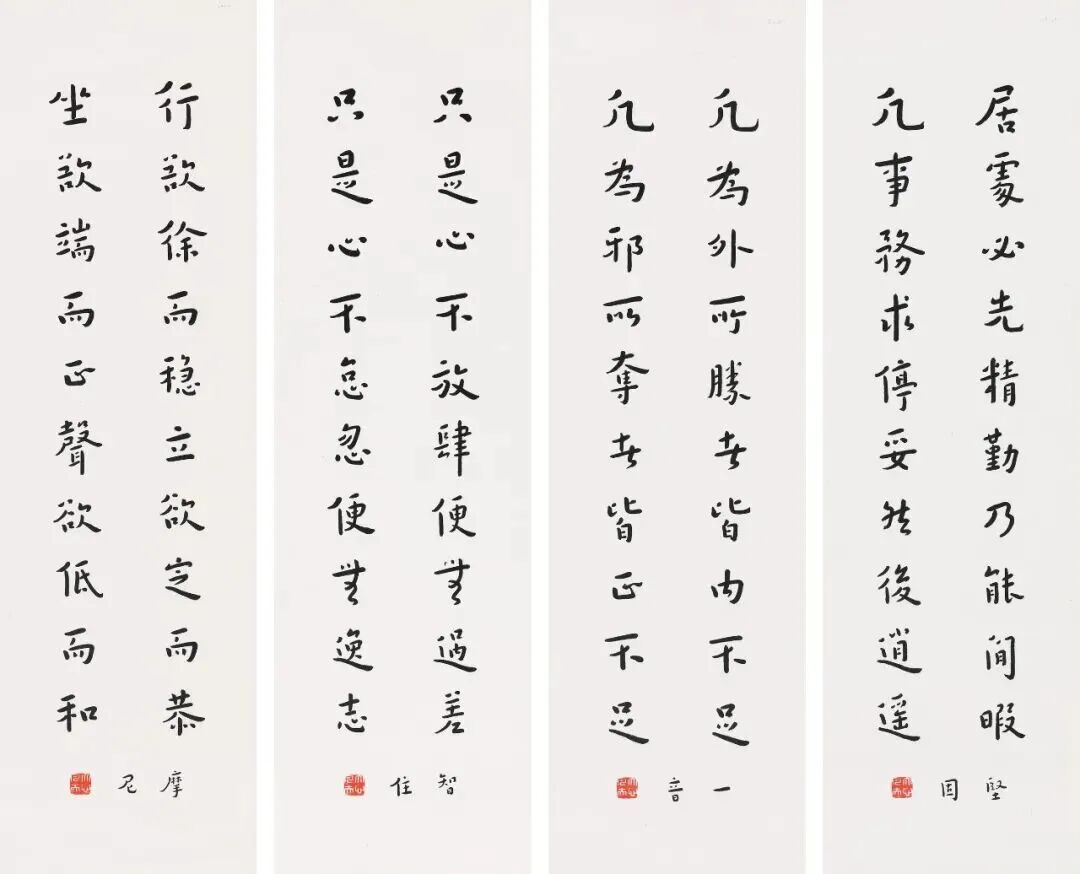 居處必先精勤乃能閒暇
凡事務求停妥然後逍遥
堅固
凡為外所勝者皆内不足
凡為邪所奪者皆正不足
一音
只是心不放肆便無過差
只是心不怠忽便無逸志
智住
行欲徐而穩立欲定而恭
坐欲端而正聲欲低而和
摩尼